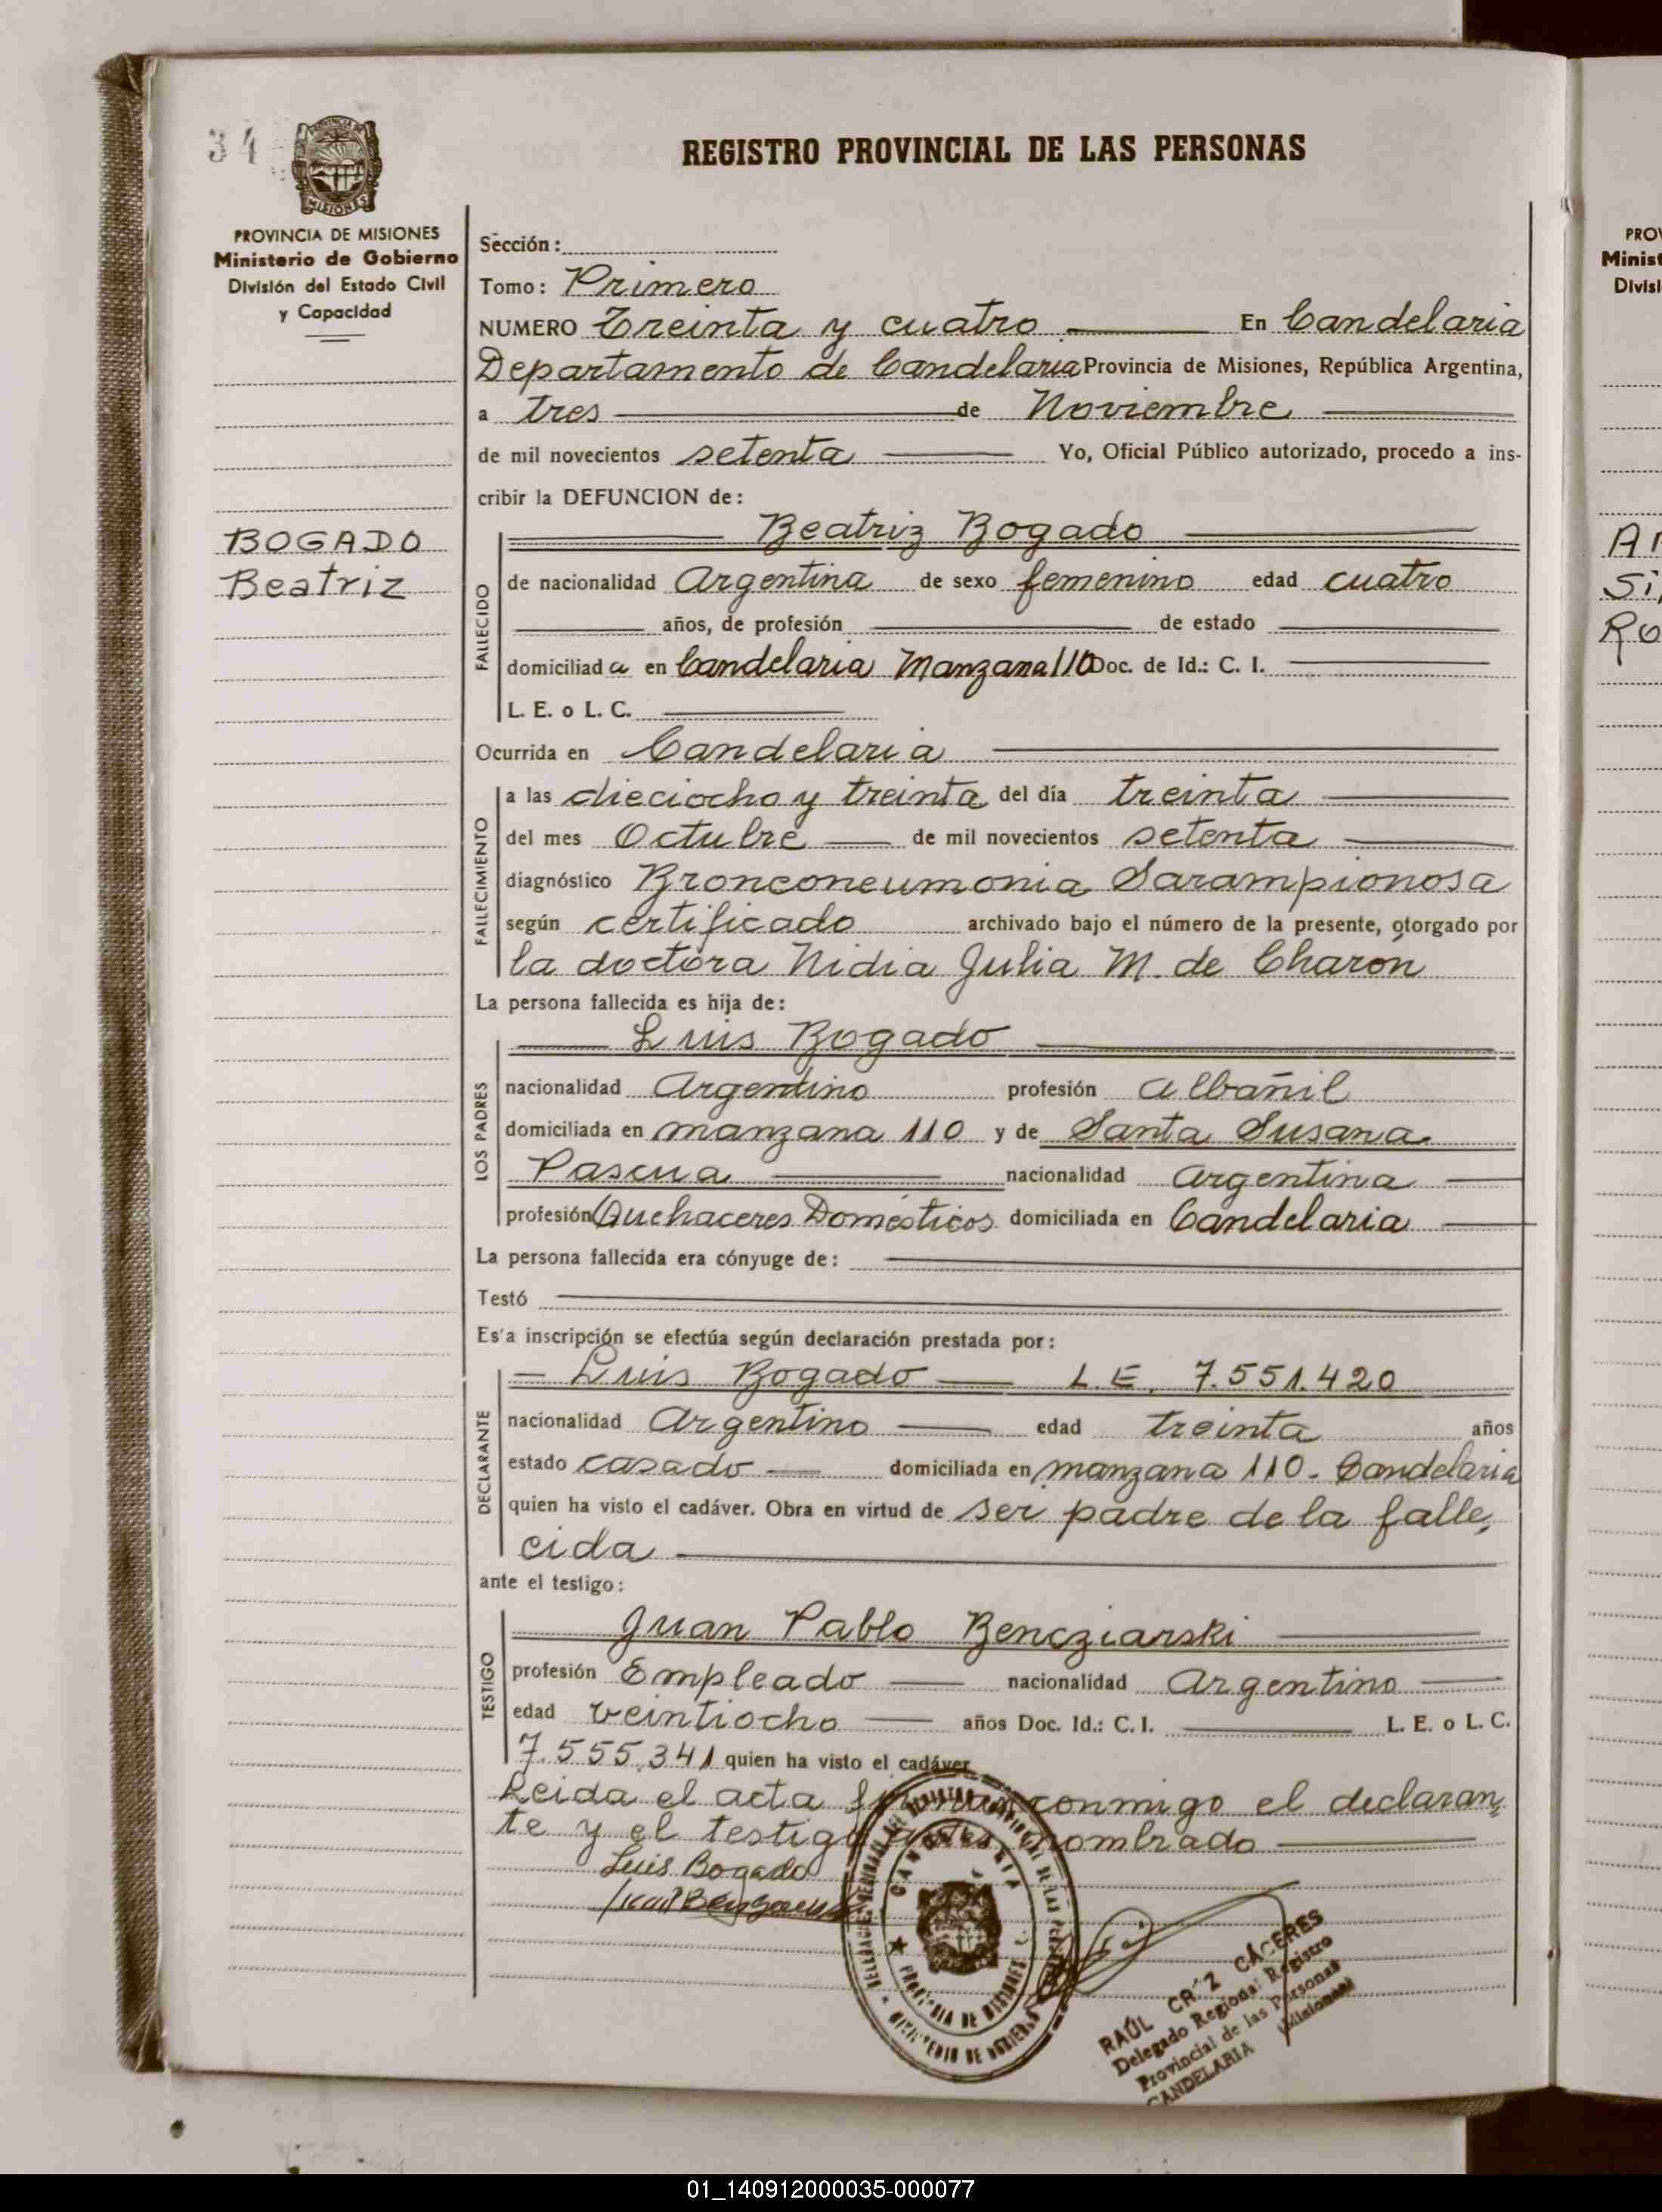 34
PROVINCIA DE
MISIONES
REGISTRO PROVINCIAL DE LAS PERSONAS
PROVINCIA DE MISIONES
Ministerio de Gobierno
División del Estado Civil
y Capacidad
BOGADO
Beatriz
Sección:
Tomo: Primero
NUMERO Treinta y cuatro En Candelaria
Departamento de Candelaria Provincia de Misiones, República Argentina,
a tres de Noviembre
de mil novecientos setenta Yo, Oficial Público autorizado, procedo a ins-
cribir la DEFUNCION de:
Beatriz Bogado
FALLECIDO
de nacionalidad Argentina de sexo femenino edad cuatro
años, de profesión de estado
domiciliad a en Candelaria Manzana 110 Doc. de Id.: C. I.
L. E. o L. C.
Ocurrida en Candelaria
FALLECIMIENTO
a las dieciocho y treinta del día treinta
del mes Octubre de mil novecientos setenta
diagnóstico Bronconeumonia Sarampionosa
según certificado archivado bajo el número de la presente, otorgado por
la doctora Nidia Julia M. de Charón
La persona fallecida es hija de:
LOS PADRES
Luis Bogado
nacionalidad Argentino profesión albañil
domiciliada en manzana 110 y de Santa Susana
Pascua nacionalidad argentina
profesión Quehaceres Domésticos domiciliada en Candelaria
La persona fallecida era cónyuge de:
Testó
Es'a inscripción se efectúa según declaración prestada por:
DECLARANTE
Luis Bogado L.E. 7.551.420
nacionalidad Argentino edad treinta años
estado casado domiciliada en manzana 110. Candelaria
quien ha visto el cadáver. Obra en virtud de ser padre de la falle
cida
ante el testigo:
TESTIGO
Juan Pablo Bencziarski
profesión Empleado nacionalidad Argentino
edad veintiocho años Doc. Id.: C. I. L. E. o L. C.
7.555.341 quien ha visto el cadáver
Leida el acta conmigo el declaran
te y el testigo nombrado
Luis Bogado
CANDELARIA
PROVINCIA DE MISIONES
MINISTERIO DE GOBIERNO
RAÚL CRUZ CÁCERES
Delegado Regional Registro
Provincial de las Personas
CANDELARIA (Misiones)
PROV
Minist
Divisi
01_140912000035-000077